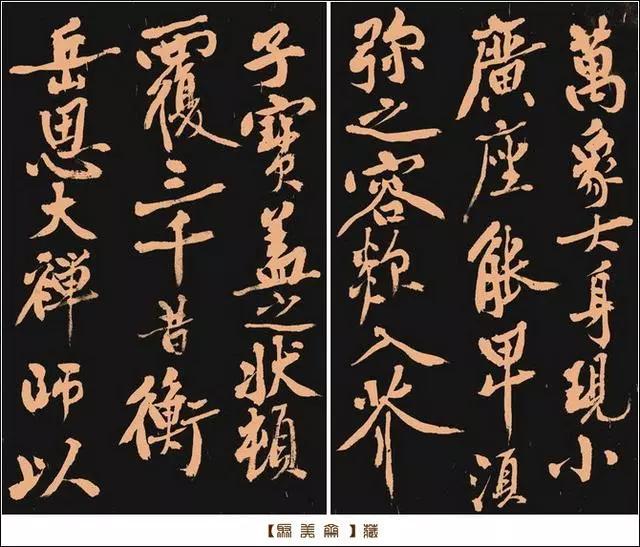 萬象大身現小
廣座能卑須
弥之容欻入芥
子寶盖之状頓
覆三千昔衡
岳思大禪師以
美
藏